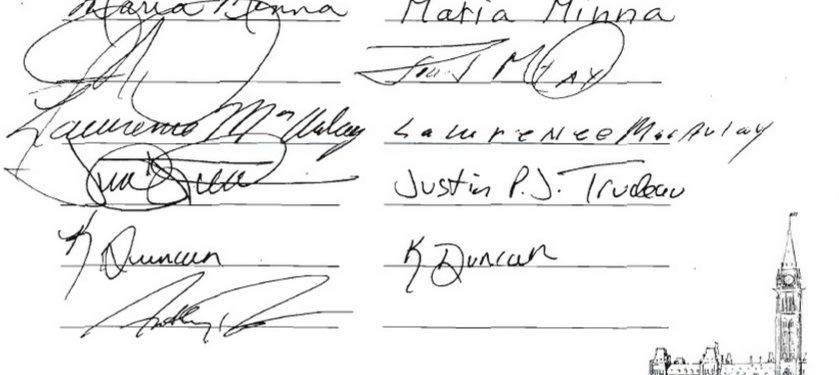 Maria Minna Maria Minna
McKay
Lawrence MacAulay Lawrence MacAulay
Justin P.J. Trudeau
K Duncan K Duncan